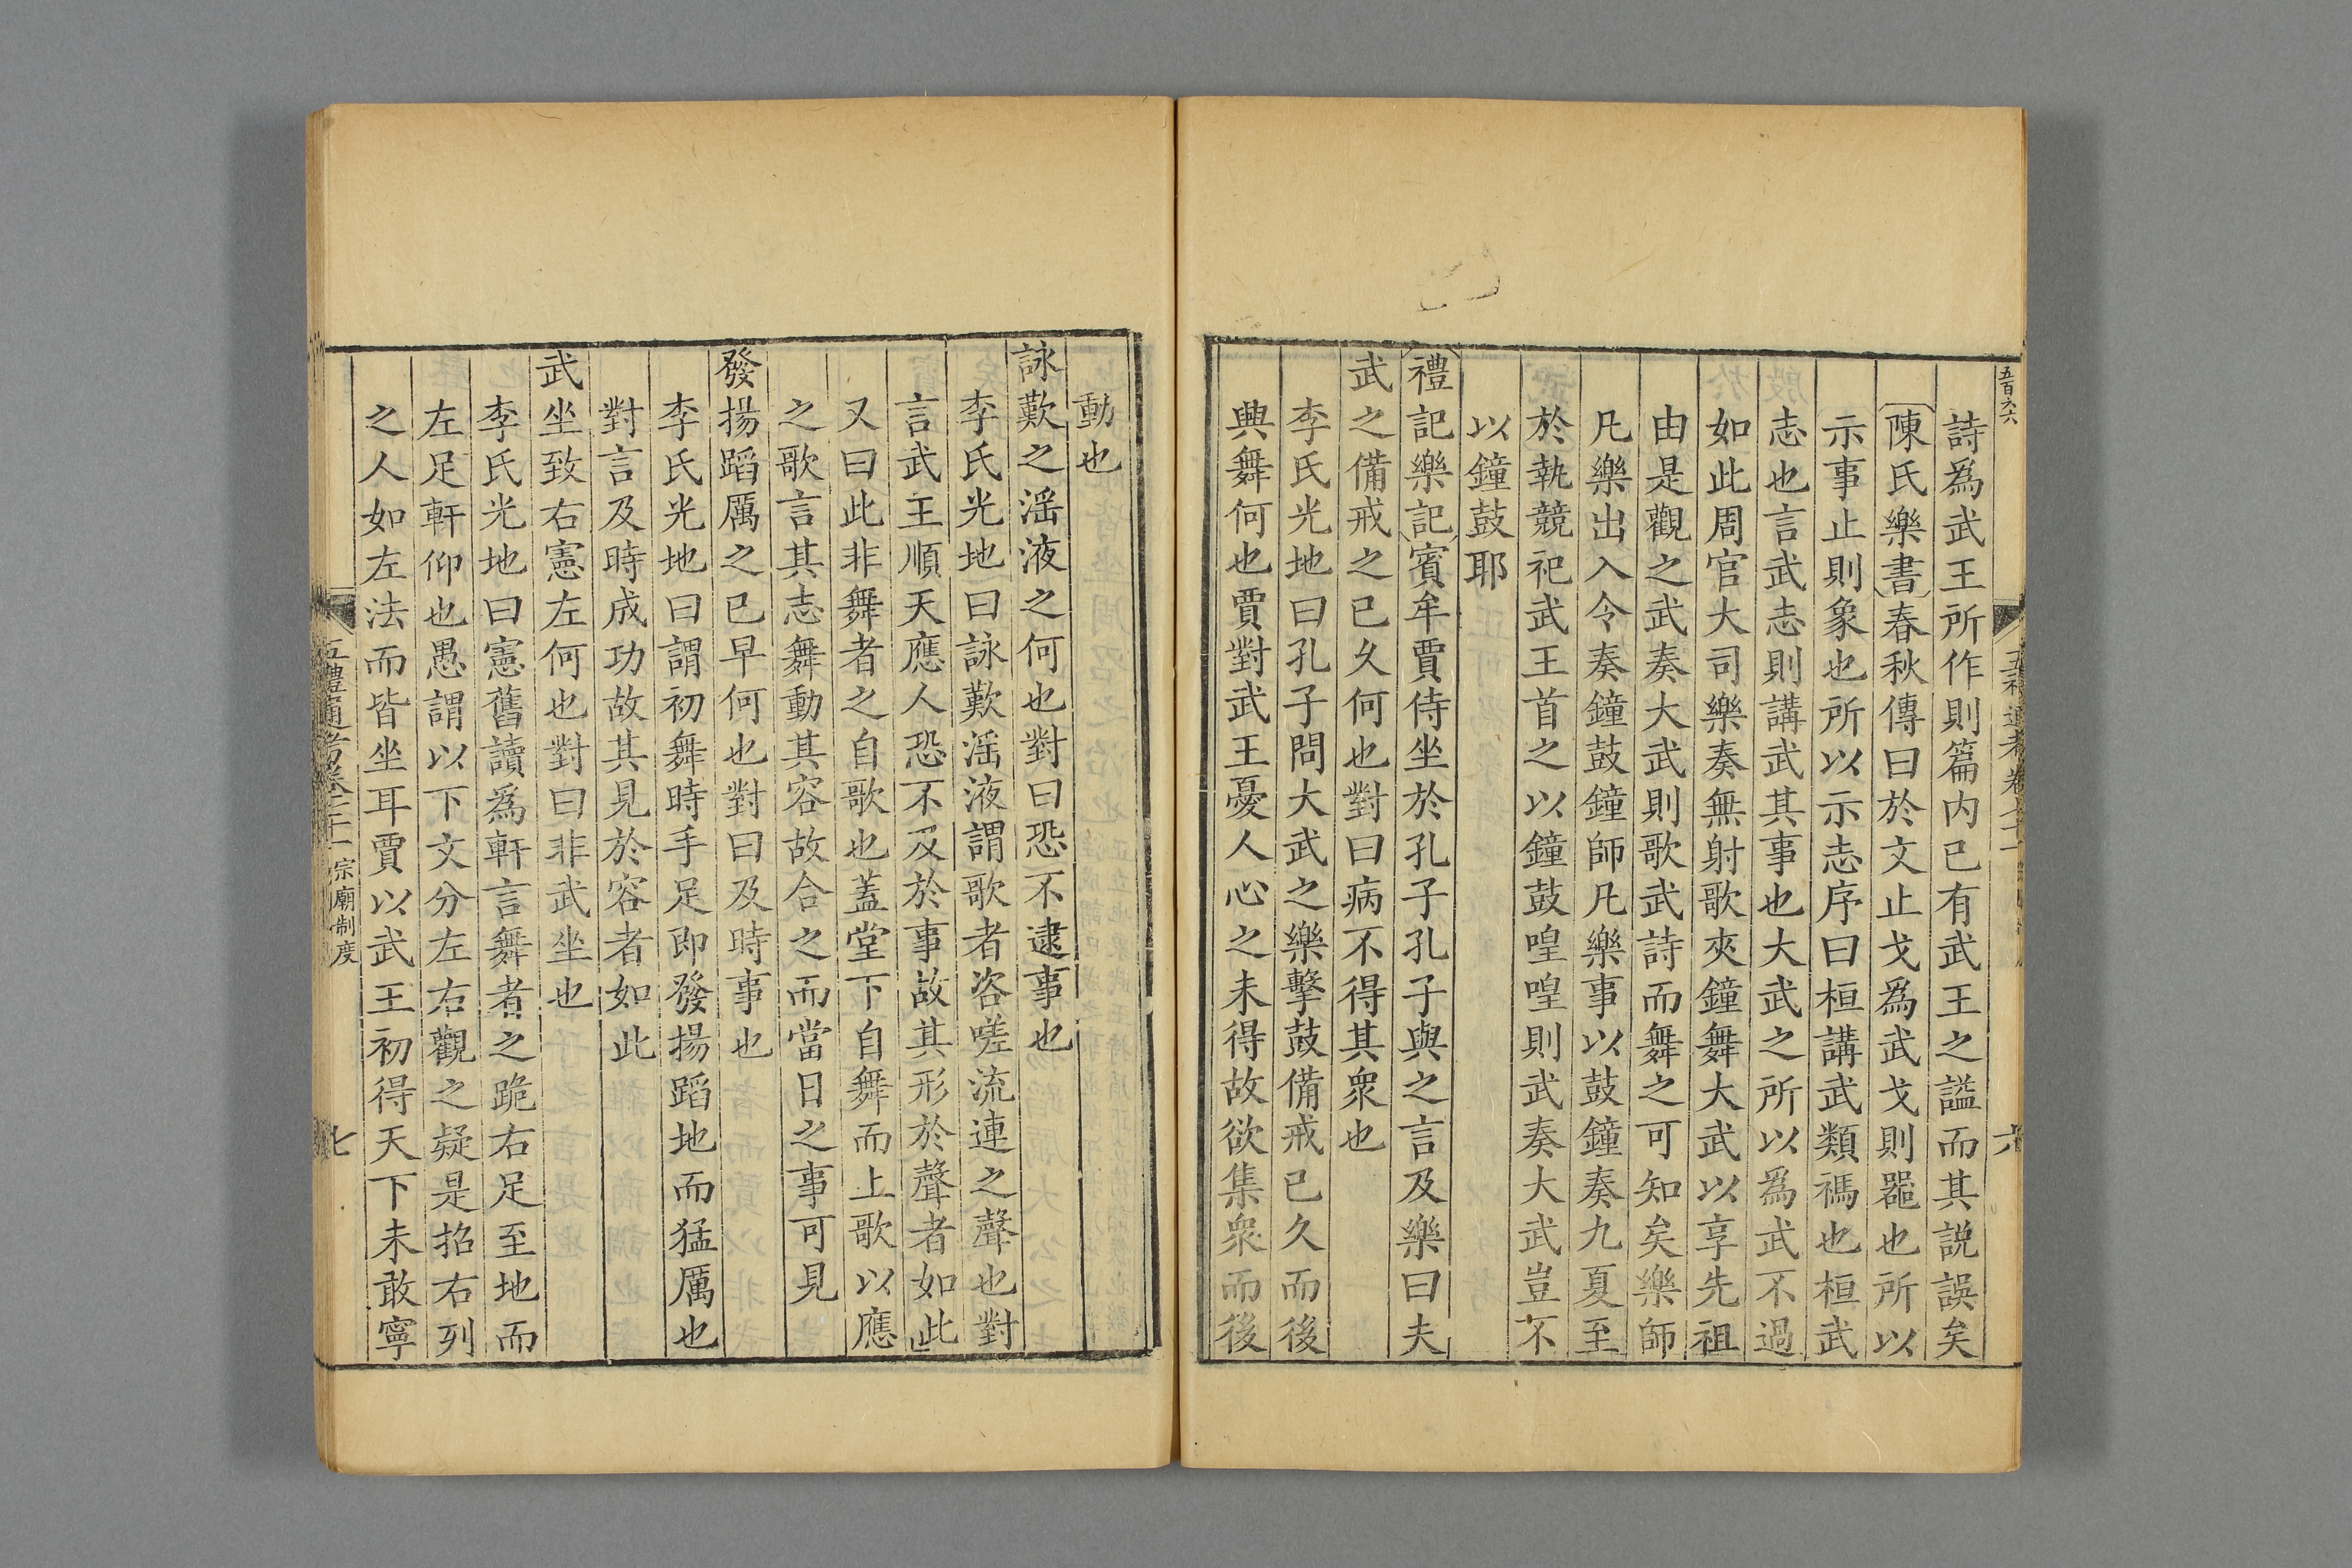 五百六六
五禮通考卷七十一
六
詩爲武王所作則篇内已有武王之諡而其説誤矣
陳氏樂書春秋傳曰於文止戈爲武戈則噐也所以
示事止則象也所以示志序曰桓講武類禡也桓武
志也言武志則講武其事也大武之所以爲武不過
如此周官大司樂奏無射歌夾鐘舞大武以享先祖
由是觀之武奏大武則歌武詩而舞之可知矣樂師
凡樂出入令奏鐘鼓鐘師凡樂事以鼓鐘奏九夏至
於執競祀武王首之以鐘鼓喤喤則武奏大武豈不
以鐘鼓耶
禮記樂記賓牟賈侍坐於孔子孔子與之言及樂曰夫
武之備戒之已久何也對曰病不得其衆也
李氏光地曰孔子問大武之樂擊鼓備戒已久而後
興舞何也賈對武王憂人心之未得故欲集衆而後
動也
詠歎之滛液之何也對曰恐不逮事也
李氏光地曰詠歎滛液謂歌者咨嗟流連之聲也對
言武王順天應人恐不及於事故其形於聲者如此
又曰此非舞者之自歌也蓋堂下自舞而上歌以應
之歌言其志舞動其容故合之而當日之事可見
發揚蹈厲之已早何也對曰及時事也
李氏光地曰謂初舞時手足即發揚蹈地而猛厲也
對言及時成功故其見於容者如此
武坐致右憲左何也對曰非武坐也
李氏光地曰憲舊讀爲軒言舞者之跪右足至地而
左足軒仰也愚謂以下文分左右觀之疑是招右列
之人如左法而皆坐耳賈以武王初得天下未敢寧
五禮通考卷七十一 宗廟制度
七